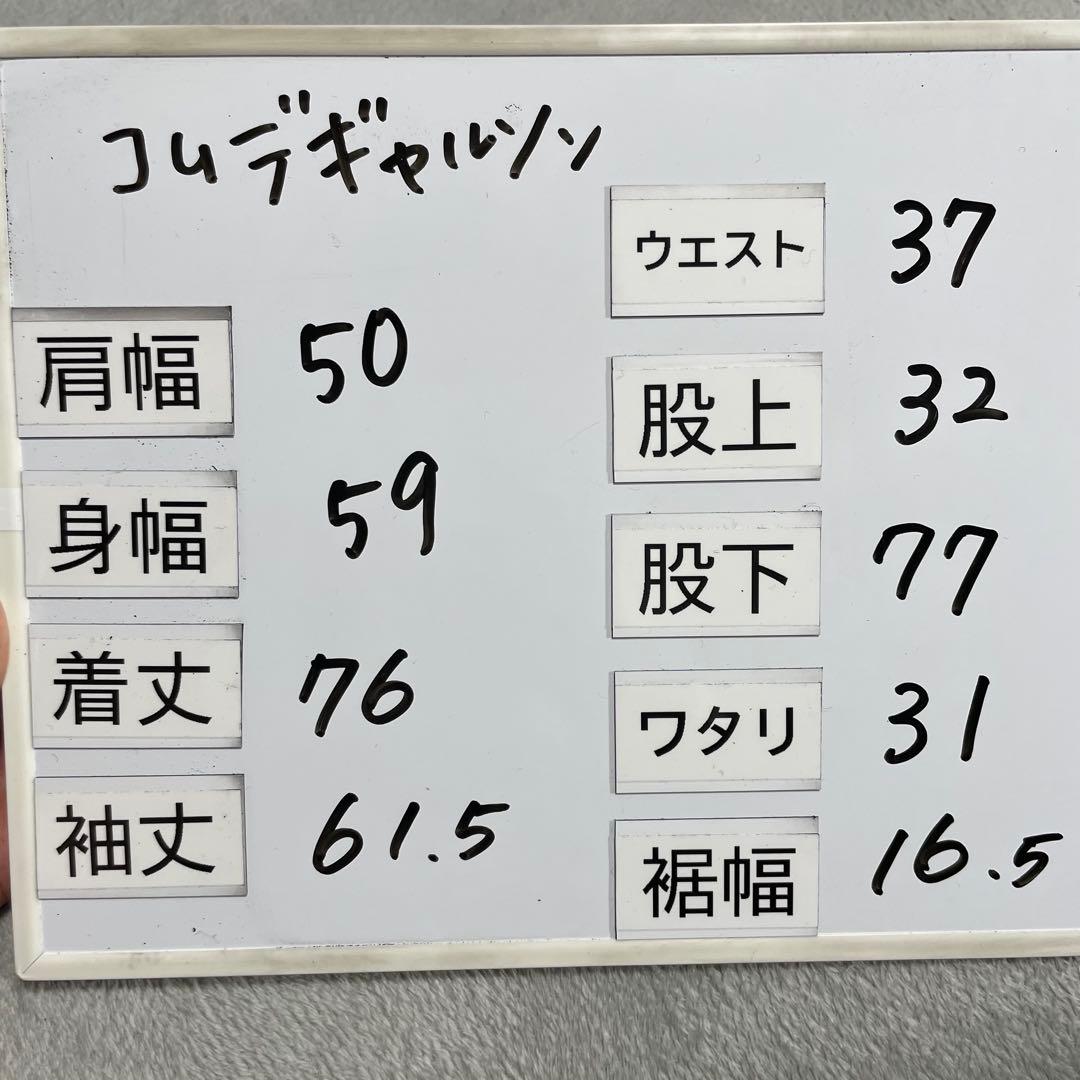 コムデギャルソン
肩幅 50
身幅 59
着丈 76
袖丈 61.5
ウエスト 37
股上 32
股下 77
ワタリ 31
裾幅 16.5